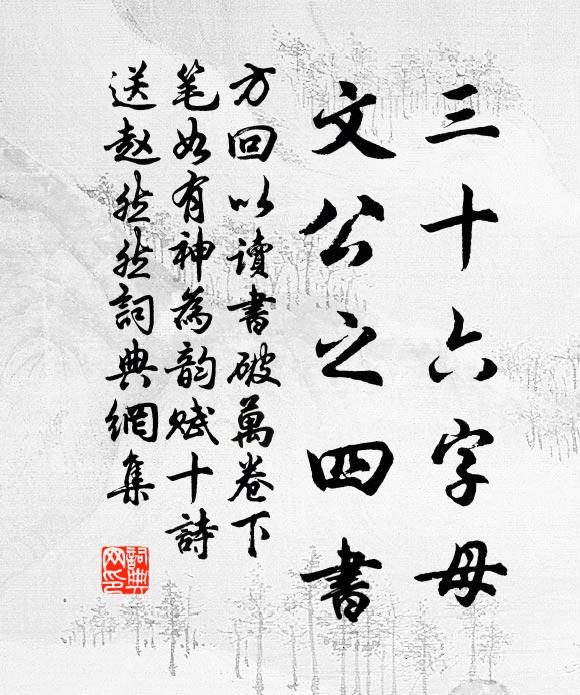 三十六字母
文公之四書
方回以讀書破萬卷下
笔如有神為韵赋十詩
送赵然然詞典網集
詞典网印